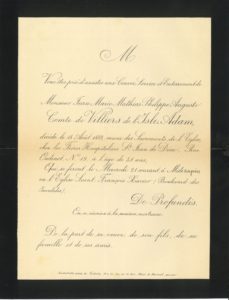 M
Vous êtes prié d'assister aux Convoi, Service et Enterrement de
Monsieur Jean Marie Mathias Philippe Auguste
Comte de Villiers de l'Isle Adam,
décédé le 18 Août 1889, muni des Sacrements de l'Église,
chez les Frères Hospitaliers St Jean de Dieu, Rue
Oudinot No 19, à l'âge de ans,
Qui se feront le Mercredi 21 courant à Midi
en l'Église Saint François Xavier, Boulevard des
Invalides.
De Profundis.
On se réunira à la maison mortuaire.
De la part de sa veuve, de son fils, de sa
famille et de ses amis.